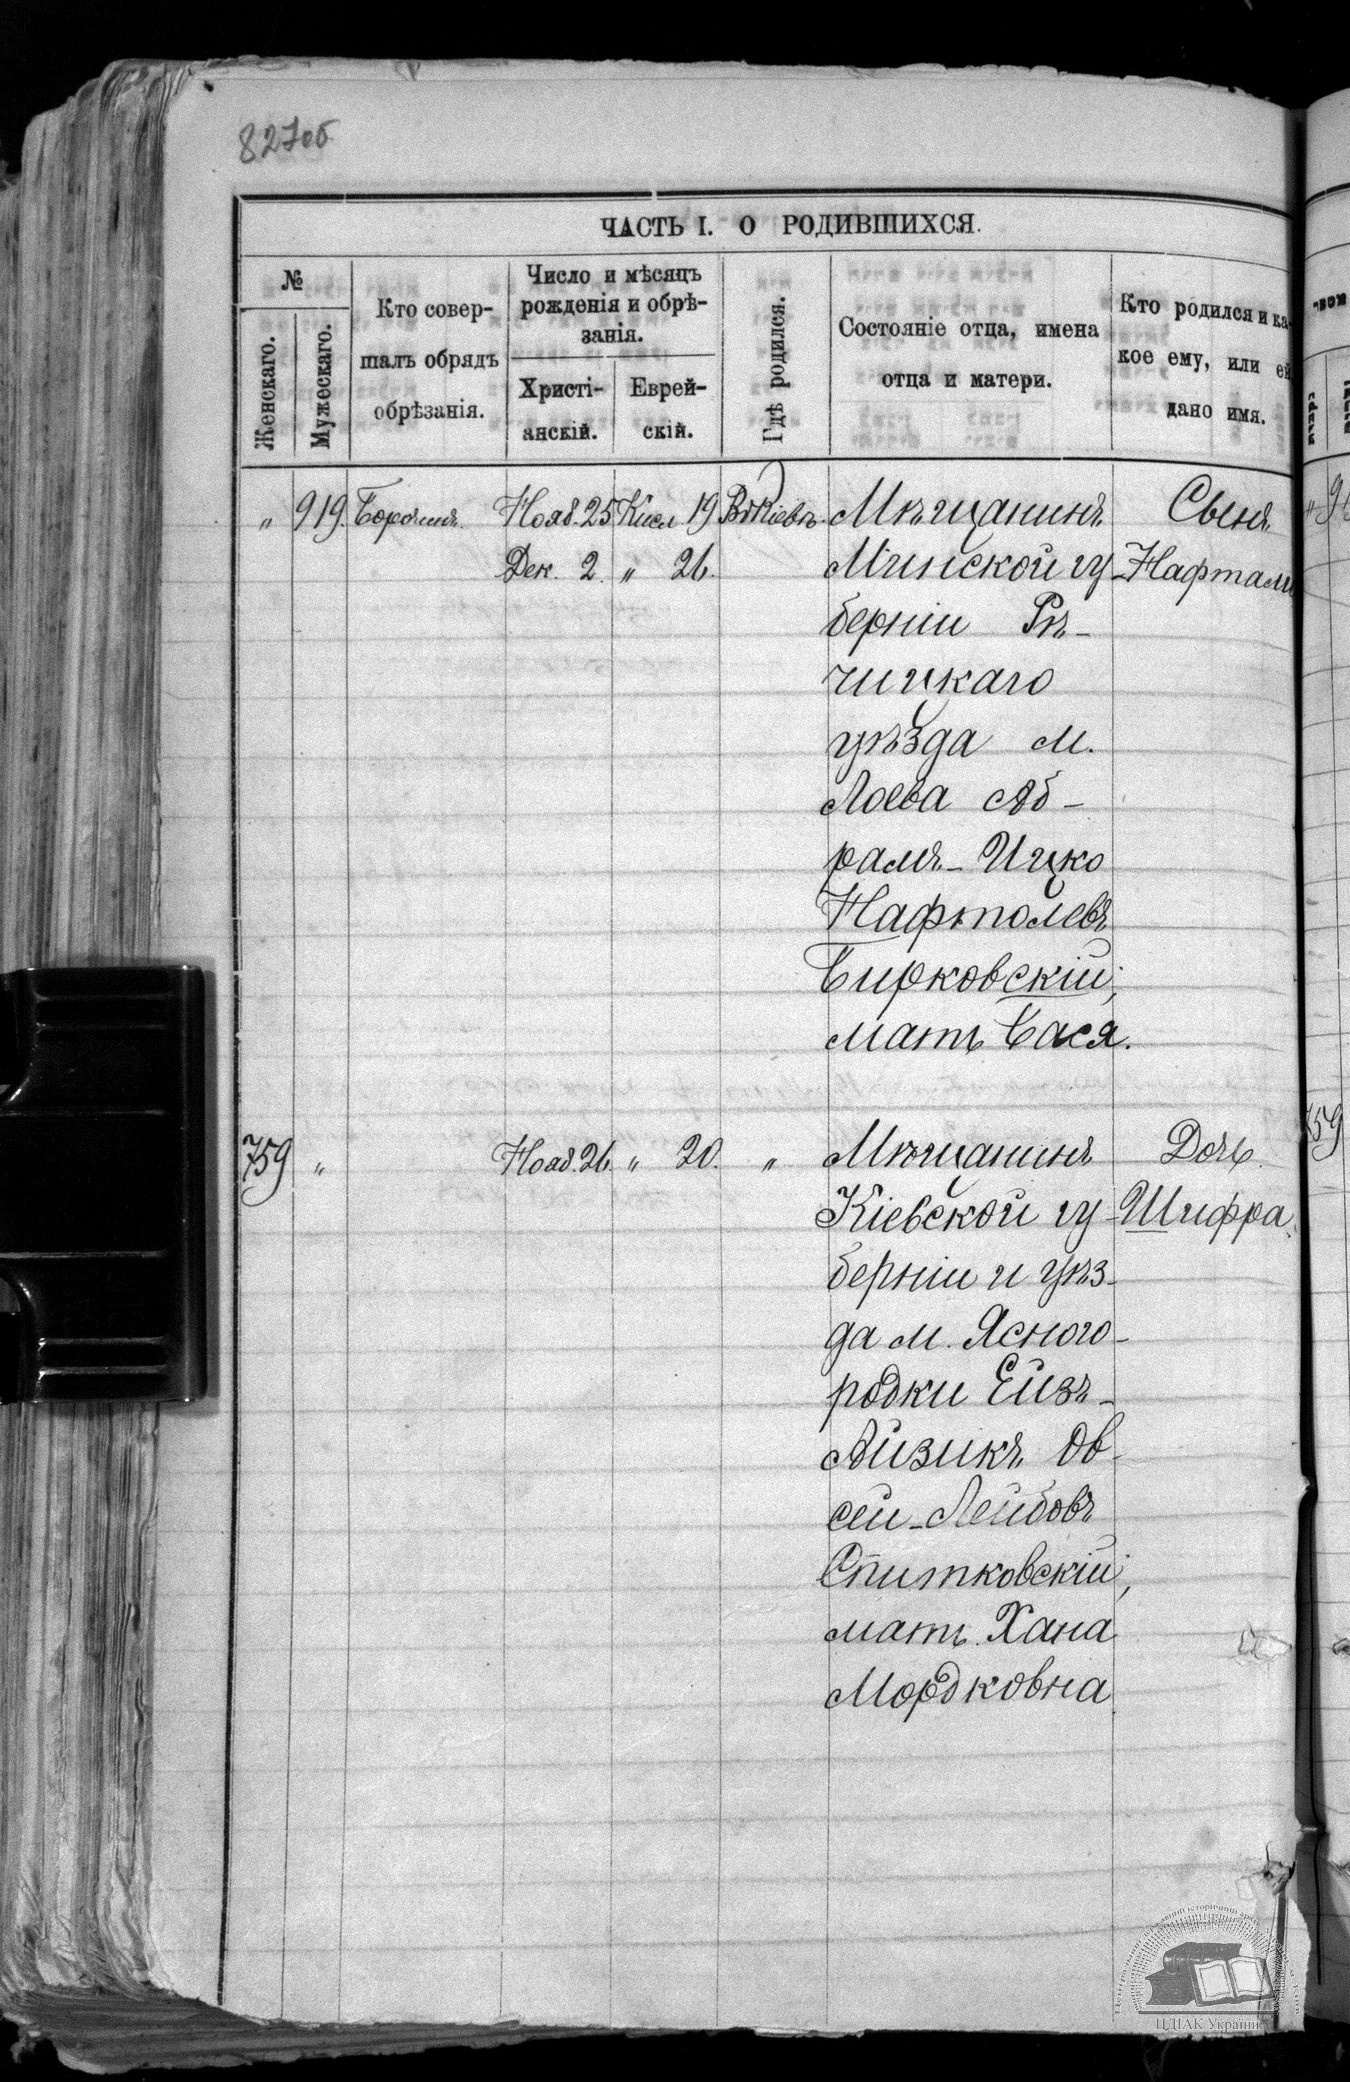 827об
ЧАСТЬ I. О РОДИВШИХСЯ.
№
Женскаго.
Мужескаго.
Кто совер-
шалъ обрядъ
обрѣзанія.
Число и мѣсяцъ
рожденія и обрѣ-
занія.
Христі-
анскій.
Еврей-
скій.
Гдѣ родился.
Состояніе отца, имена
отца и матери.
Кто родился и ка-
кое ему, или ей
дано имя.
„ 919. Нояб. 25 Кисл 19 Въ Кіевѣ. Мѣщанинъ Сынъ
Дек. 2. „ 26. Минской гу- Нафтали
берніи Рѣ-
чицкаго
уѣзда м.
Лоева Аб-
рамъ-Ицко
Нафтолевъ
Бирковскій;
мать Бася.
759 „ Нояб. 26. „ 20. „ Мѣщанинъ Дочь
Кіевской гу- Шифра.
берніи и уѣз-
да м. Ясного-
родки Ейзъ-
Айзикъ Ов-
сей-Лейбовъ
Спитковскій;
мать Хана
Мордковна
759
ЦДІАК України